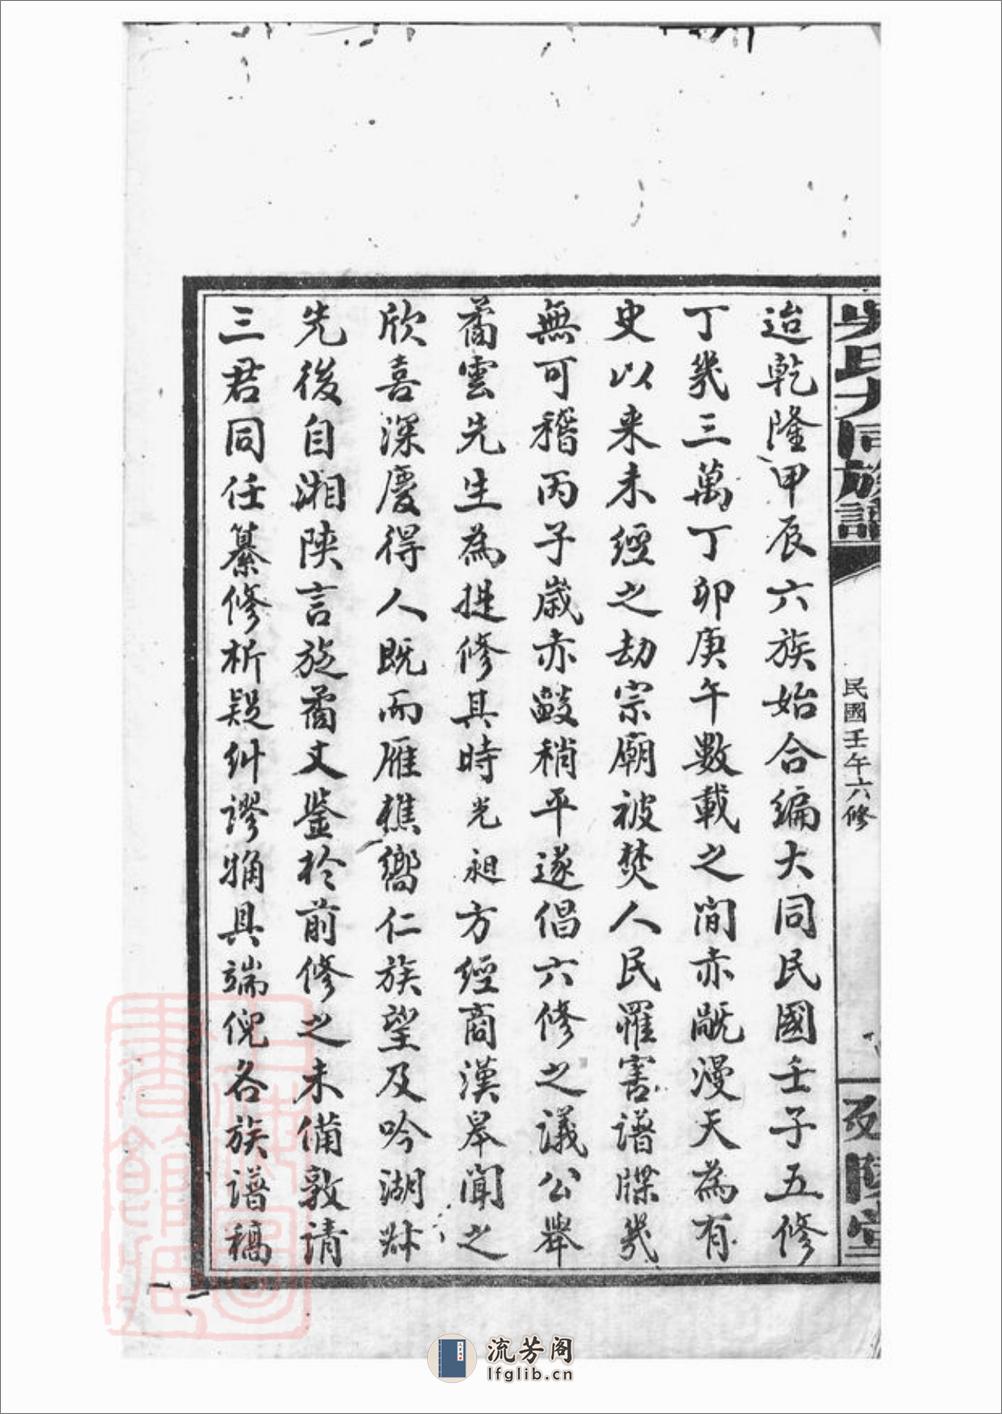 吳氏大同族譜
民國壬午六修
延陵堂
迨乾隆甲辰六族始合編大同民國壬子五修
丁幾三萬丁卯庚午數載之間赤燄漫天為有
史以来未經之劫宗廟被焚人民罹害譜牒幾
無可稽丙子嵗赤燄稍平遂倡六修之議公舉
矞雲先生為提修其時光昶方經商漢皋聞之
欣喜深慶得人既而雁樵嚮仁族望及吟湖妹
先後自湘陝言旋矞丈鉴於前修之未備敦請
三君同任纂修析疑糾謬觕具端倪各族譜稿
流芳阁
lfglib.cn